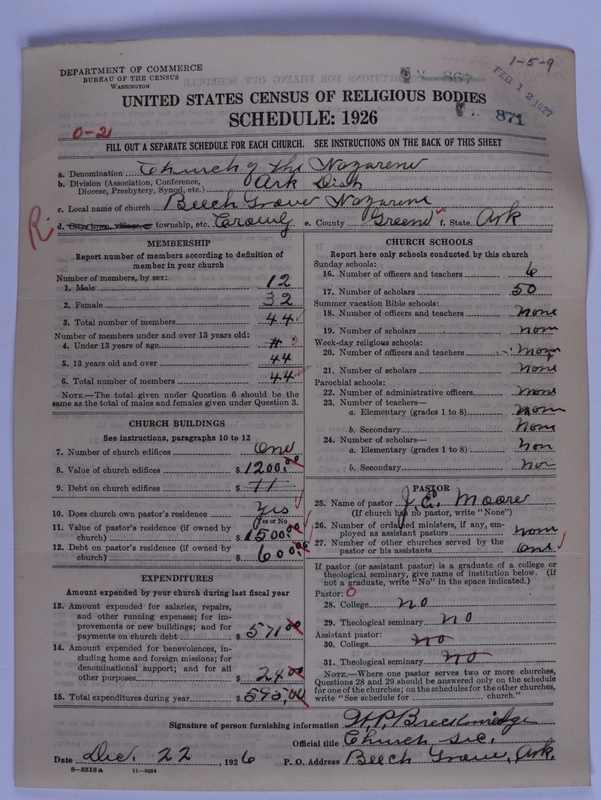 1-5-9
DEPARTMENT OF COMMERCE
BUREAU OF THE CENSUS
WASHINGTON
867
FEB 12 1927
UNITED STATES CENSUS OF RELIGIOUS BODIES
SCHEDULE: 1926
871
0-2
FILL OUT A SEPARATE SCHEDULE FOR EACH CHURCH. SEE INSTRUCTIONS ON THE BACK OF THIS SHEET
a. Denomination Church of the Nazarene
b. Division (Association, Conference, Diocese, Presbytery, Synod, etc.) Ark Dist
c. Local name of church Beech Grove Nazarene
R. d. City, town, village, or township, etc. e. County Green f. State Ark
MEMBERSHIP
Report number of members according to definition of
member in your church
Number of members, by sex:
1. Male 12
2. Female 32
3. Total number of members 44
Number of members under and over 13 years old:
4. Under 13 years of age
5. 13 years old and over 44
6. Total number of members 44
NOTE.—The total given under Question 6 should be the
same as the total of males and females given under Question 3.
CHURCH BUILDINGS
See instructions, paragraphs 10 to 12
7. Number of church edifices One
8. Value of church edifices $ 1200.00
9. Debt on church edifices $ 11
10. Does church own pastor's residence Yes
Yes or No
11. Value of pastor's residence (if owned by
church) $ 1500.00
12. Debt on pastor's residence (if owned by
church) $ 600.00
EXPENDITURES
Amount expended by your church during last fiscal year
13. Amount expended for salaries, repairs,
and other running expenses; for im-
provements or new buildings; and for
payments on church debt $ 571 00
14. Amount expended for benevolences, in-
cluding home and foreign missions; for
denominational support; and for all
other purposes $ 24 00
15. Total expenditures during year $ 595,00
CHURCH SCHOOLS
Report here only schools conducted by this church
Sunday schools:
16. Number of officers and teachers 6
17. Number of scholars 50
Summer vacation Bible schools:
18. Number of officers and teachers none
19. Number of scholars none
Week-day religious schools:
20. Number of officers and teachers none
21. Number of scholars none
Parochial schools:
22. Number of administrative officers none
23. Number of teachers—
a. Elementary (grades 1 to 8) none
b. Secondary none
24. Number of scholars—
a. Elementary (grades 1 to 8) non
b. Secondary no
PASTOR
25. Name of pastor J. E. Moore
(If church has no pastor, write "None")
26. Number of ordained ministers, if any, em-
ployed as assistant pastors none
27. Number of other churches served by the
pastor or his assistants one
If pastor (or assistant pastor) is a graduate of a college or
theological seminary, give name of institution below. (If
not a graduate, write "No" in the space indicated.)
Pastor: 0
28. College no
29. Theological seminary no
Assistant pastor:
30. College no
31. Theological seminary no
NOTE.—Where one pastor serves two or more churches,
Questions 28 and 29 should be answered only on the schedule
for one of the churches; on the schedules for the other churches,
write "See schedule for church."
Signature of person furnishing information W.P. Breckenridge
Official title Church Sec.
Date Dec. 22, 1926 P. O. Address Beech Grove, Ark.
8-5518a 11-9684